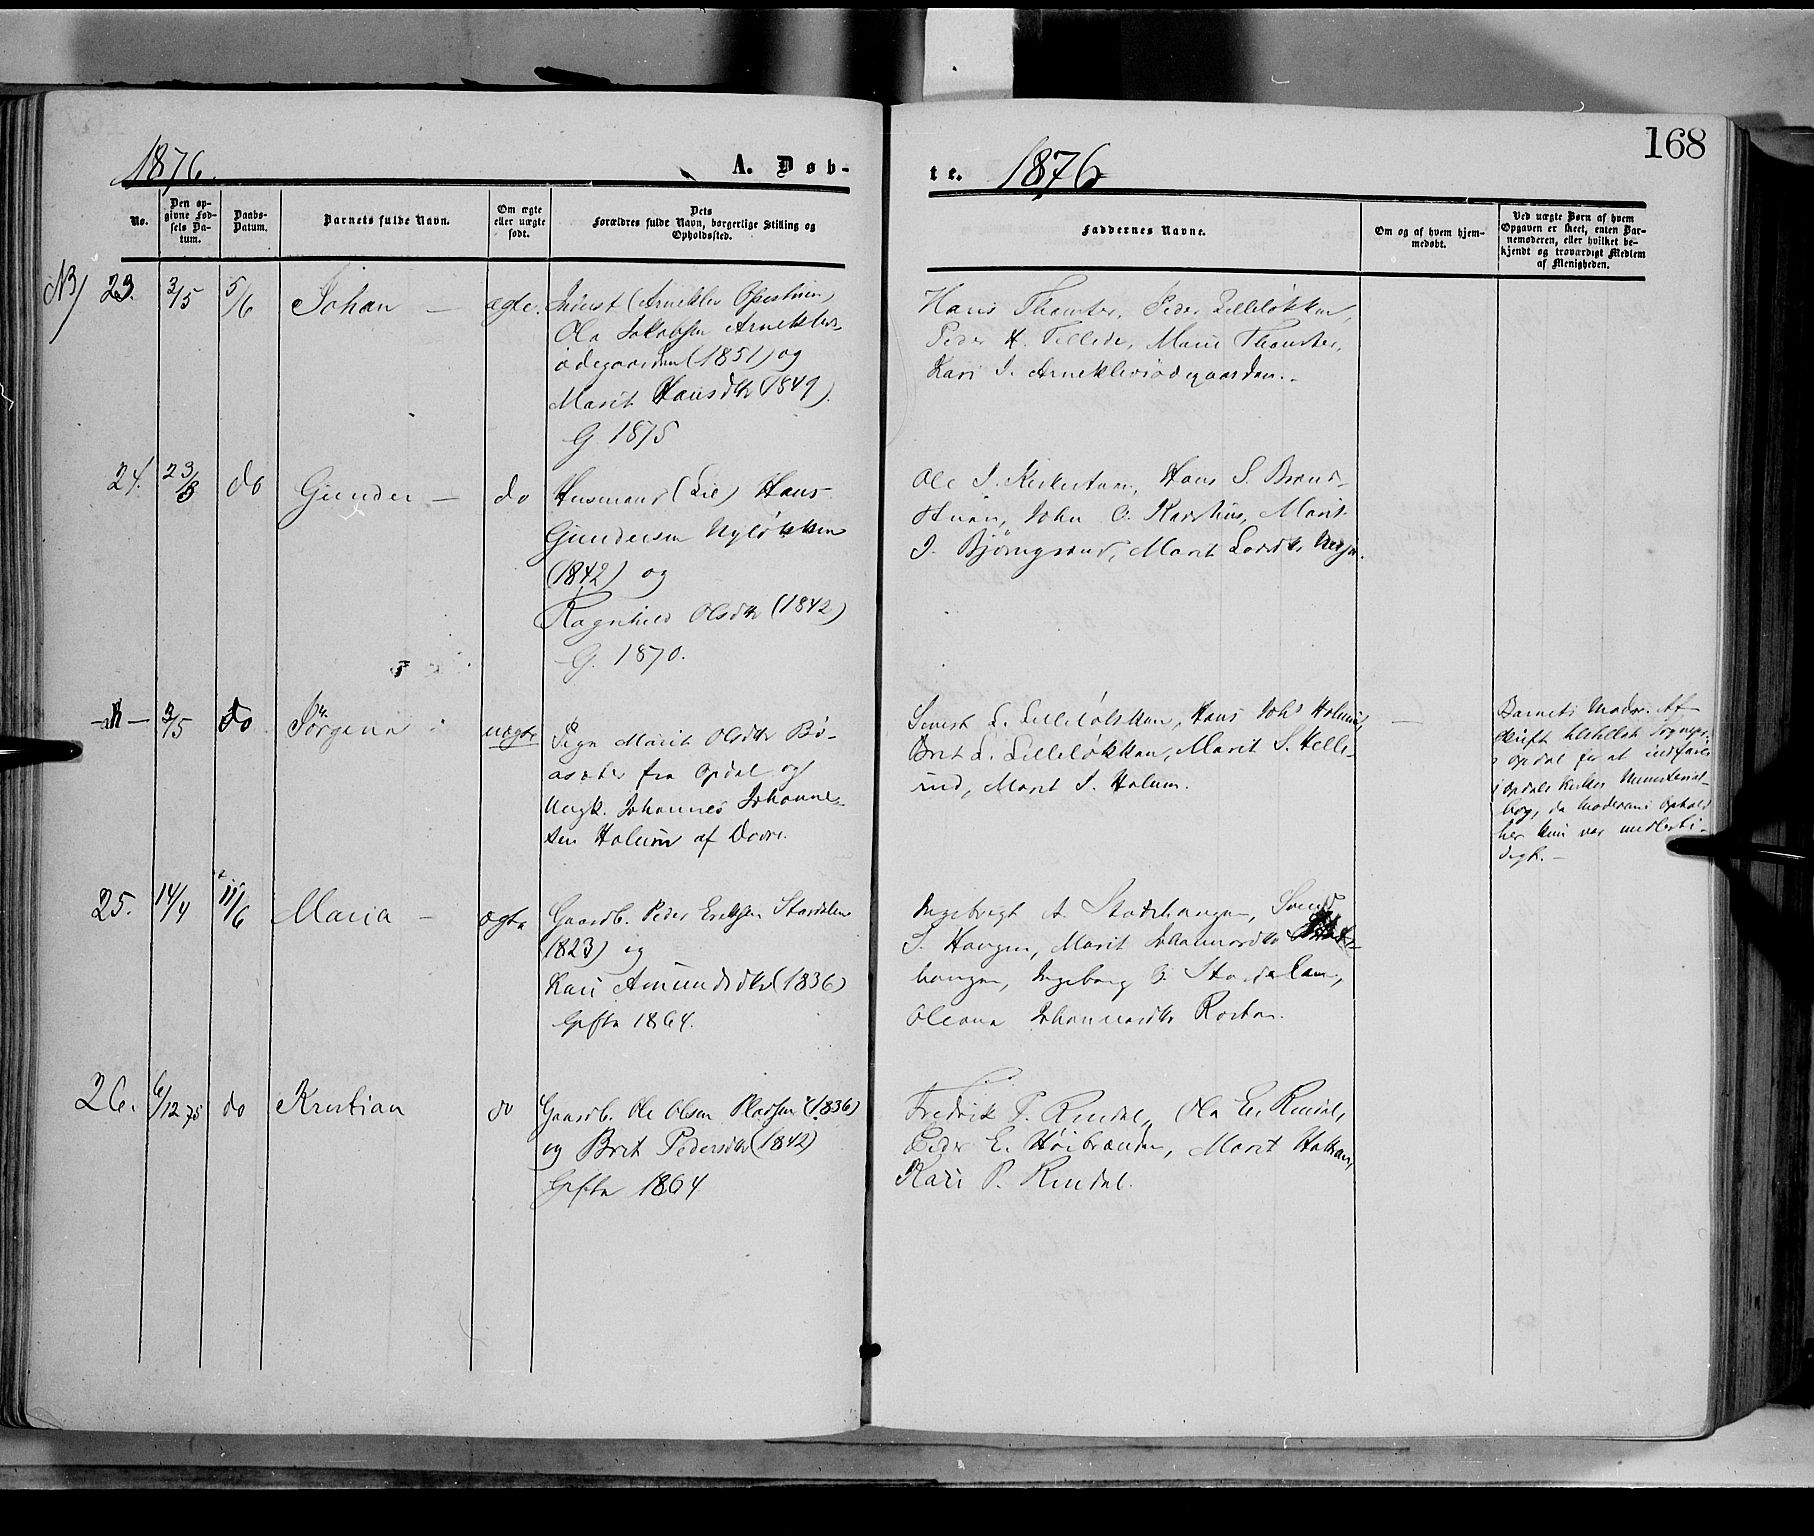 168
1876.
A. Døb-
te. 1876
No.
Den op-
givne Fød-
sels Da-
tum.
Daabs-
Datum.
Barnets fulde Navn.
Om ægte
eller uægte
født.
Dets
Forældres fulde Navn, borgerlige Stilling og
Opholdssted.
Faddernes Navne.
Om og af hvem hjem-
medøbt.
Ved uægte Børn af hvem
Opgaven er skeet, enten Bar-
nemoderen, eller hvilket be-
kjendt og troværdigt Medlem
af Menigheden.
23. 3/5 5/6 Johan — ægte.
Ola Jakobsen Arneklevs-
ødegaarden (1851) og
Marit Hansdtr (1849).
G 1875
Hans Thomter, Peder Lilleløkken,
Peder H. Marie Thomter,
Kari J. Arneklevsødegaarden.
24. 23/3 do Gunder — do
Husmand (Lie) Hans
Gundersen Nyløkken
(1842) og
Ragnhild Olsdtr (1842)
G. 1870.
Ole J. Hans S. Brænd-
John O. Marit
J. Bjørngsrud, Marit Larsdtr
3/5 do Jørgina uægte
Pige Marit Olsdtr Bø-
asæter fra Opdal og
Ungk. Johannes Johanne-
sen Holum af Dovre.
L. Lilleløkken, Hans Johs Holum,
Brit L. Lilleløkken, Marit S. Helle-
rud, Marit J. Holum.
Barnets Moder. Af-
skrift Sognepr.
i Opdal for at indføres
i Opdals Kirkes Ministerial-
bog, da Moderens Ophold
her kun var midlerti-
digt. —
25. 14/4 11/6 Maria — ægte
Gaardb. Peder Eriksen Stordalen
(1823) og
Kari Amundsdtr (1836)
Gifte 1864.
Ingebrigt A. Svend
S. Haugen, Marit Johannesdtr
haugen, Ingeborg O. Stordalen,
Oleana Johannesdtr Rosten.
26. 6/12 75 do Kristian do
Gaardb. Ole Olsen Pladsen (1836)
og Brit Pedersdtr (1842)
Gifte 1864
Fredrik P. Rindal, Ola E. Rindal,
Peder E. Høibrænden, Marit
Kari P. Rindal.